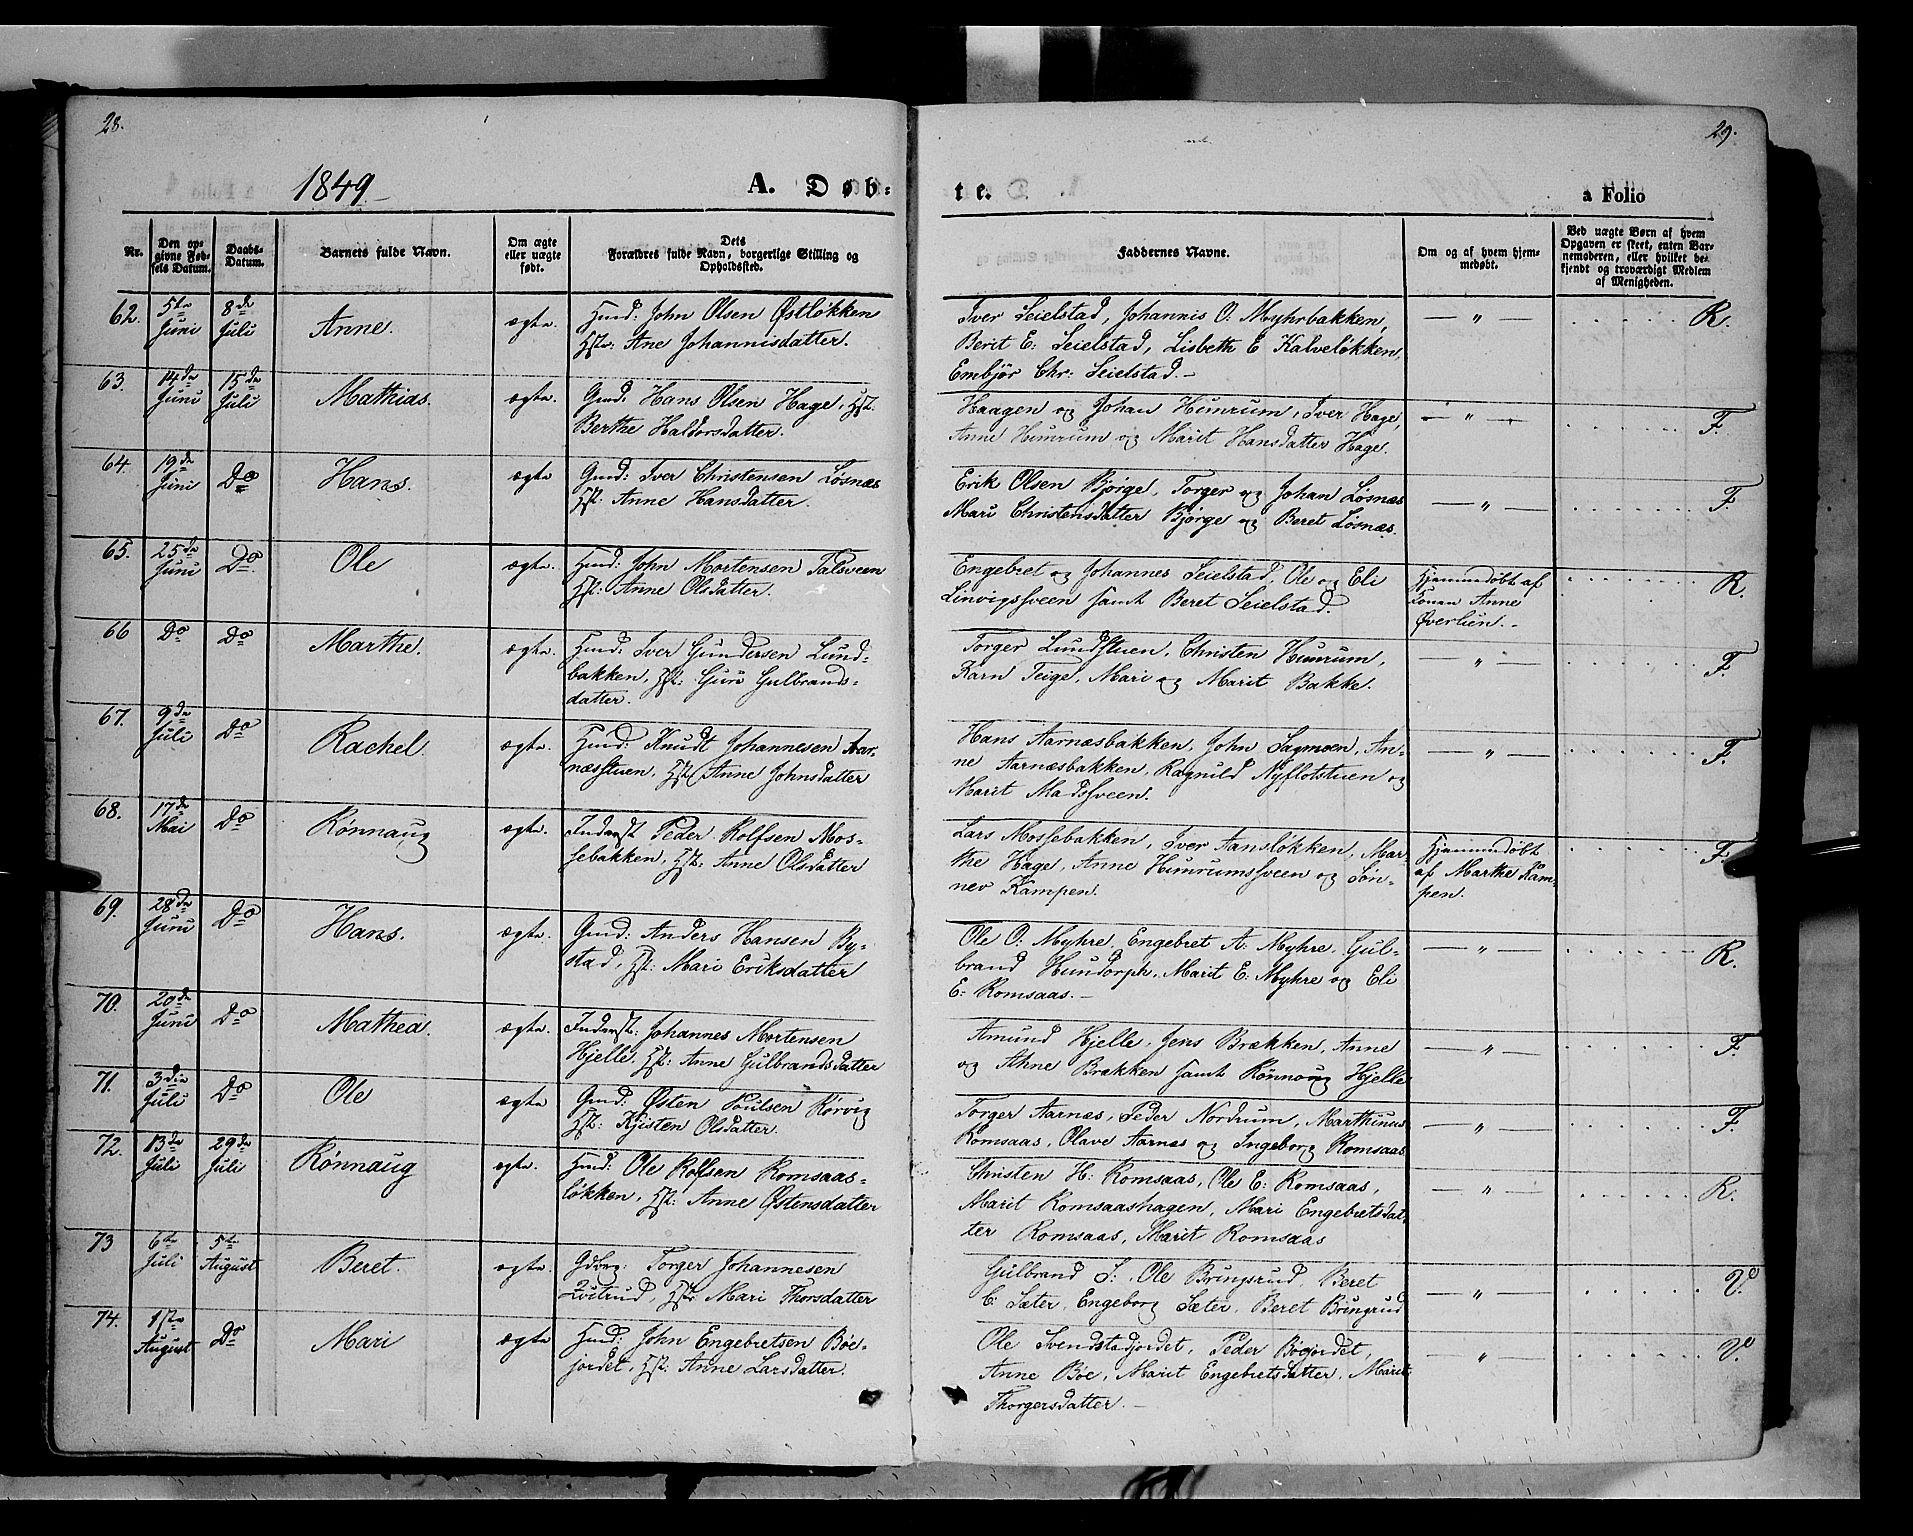 28.
29.
1849
A. Døb-
te.
a Folio
Nr.
Den op-
givne Fød-
sels Datum.
Daabs-
Datum.
Barnets fulde Navn.
Om ægte
eller uægte
født.
Dets
Forældres fulde Navn, borgerlige Stilling og
Opholdssted.
Faddernes Navne.
Om og af hvem hjem-
medøbt.
Ved uægte Børn af hvem
Opgaven er skeet, enten Bar-
nemoderen, eller hvilket be-
kjendt og troværdigt Medlem
af Menigheden.
62. 5te Juni 8de Juli Anne. ægte Huusmd: John Olsen Østløkken
Hst: Ane Johannisdatter.
Iver Seielstad, Johannis O: Myhrbakken,
Berit E: Seielstad, Lisbeth E Kalveløkken,
Embjør Chr: Seielstad.-
— " — R.
63. 14de Juni 15de Juli Mathias. ægte. Gmd: Hans Olsen Hage, Hst.
Berthe Haldorsdatter.
Haagen og Johan Hunrum, Iver Hage,
Anne Hunrum og Marit Hansdatter Hage.
— " — F.
64. 19de Juni Do Hans. ægte Gmd: Iver Christensen Løsnæs
Hst: Anne Hansdatter.
Erik Olsen Bjørge, Torger og Johan Løsnæs
Mari Christensdatter Bjørge og Beret Løsnæs.
— " — F.
65. 25de Juni Do Ole ægte. Hmd: John Mortensen Talsveen
Hst: Anne Olsdatter.
Engebret og Johannes Seielstad, Ole og Eli
Linvigssveen samt Beret Seielstad.
Hjemmedøbt af
Konen Anne
Øverlien.-
R.
66 Do Do Marthe. ægte. Hmd: Iver Gundersen Lund-
bakken, Hst: Guri Gulbrands-
datter.
Torger Lundstuen, Christen Hunrum,
Karn Teige, Mari og Marit Bakke.
— " — F.
67. 9de Juli Do Rachel. ægte. Hmd: Knudt Johannesen Aar-
næsstuen, Hst: Anne Johnsdatter
Hans Aarnæsbakken, John Sagmoen, An-
ne Aarnæsbakken, Ragnild Nyflotstuen og
Marit Madssveen.
— " — F.
68. 17de Mai Do Rønnaug ægte. Inderst Peder Rolfsen Mos-
sebakken, Hst: Anne Olsdatter
Lars Mossebakken, Iver Aansløkken, Mar-
the Hage, Anne Hunrumssveen og Søn-
nev Kampen.
Hjemmedøbt
af Marthe Kam-
pen.
F.
69. 28de Juni Do Hans. ægte. Gmd: Anders Hansen Ry-
stad, Hst: Mari Eriksdatter
Ole O: Myhre, Engebret A: Myhre, Gul-
brand Hundorph, Marit E: Myhre og Eli
E: Romsaas.-
— " — R.
70. 20de Juni Do Mathea. ægte. Inderst: Johannes Mortensen
Hjelle, Hst: Anne Gulbrandsdatter
Amund Hjelle, Jens Brækken, Anne
og Athne Brækken samt Rønnoug Hjelle
— " — F.
71. 3die Juli Do Ole ægte Gmd: Østen Poulsen Kørvig
Hst: Kjisten Olsdatter.
Torger Aarnæs, Peder Nordrum, Marthinus
Romsaas, Olave Aarnæs og Ingeborg Romsaas
— " — F
72. 13de Juli 29de Juli Rønnaug ægte. Hmd: Ole Rolfsen Romsaas-
løkken, Hst: Anne Østensdatter
Christen H: Romsaas, Ole E: Romsaas,
Marit Romsaashagen, Mari Engebretsdat-
ter Romsaas, Marit Romsaas
— " — R.
73 6te Juli 5te August Beret. ægte. Gdbrg: Torger Johannesen
Hst: Mari Thorsdatter
Gulbrand S:, Ole Bringsrud, Beret
C: Sæter, Engeborg Sæter, Beret Bringrud
— " — V.
74. 1ste August Do Mari ægte Hmd: John Engebretsen Bøe-
jordet, Hst: Anne Larsdatter.
Ole Svendstadjordet, Peder Bøejordet,
Anne Bøe, Marit Engebretsdatter, Marit
Thorgersdatter.-
— " — V.